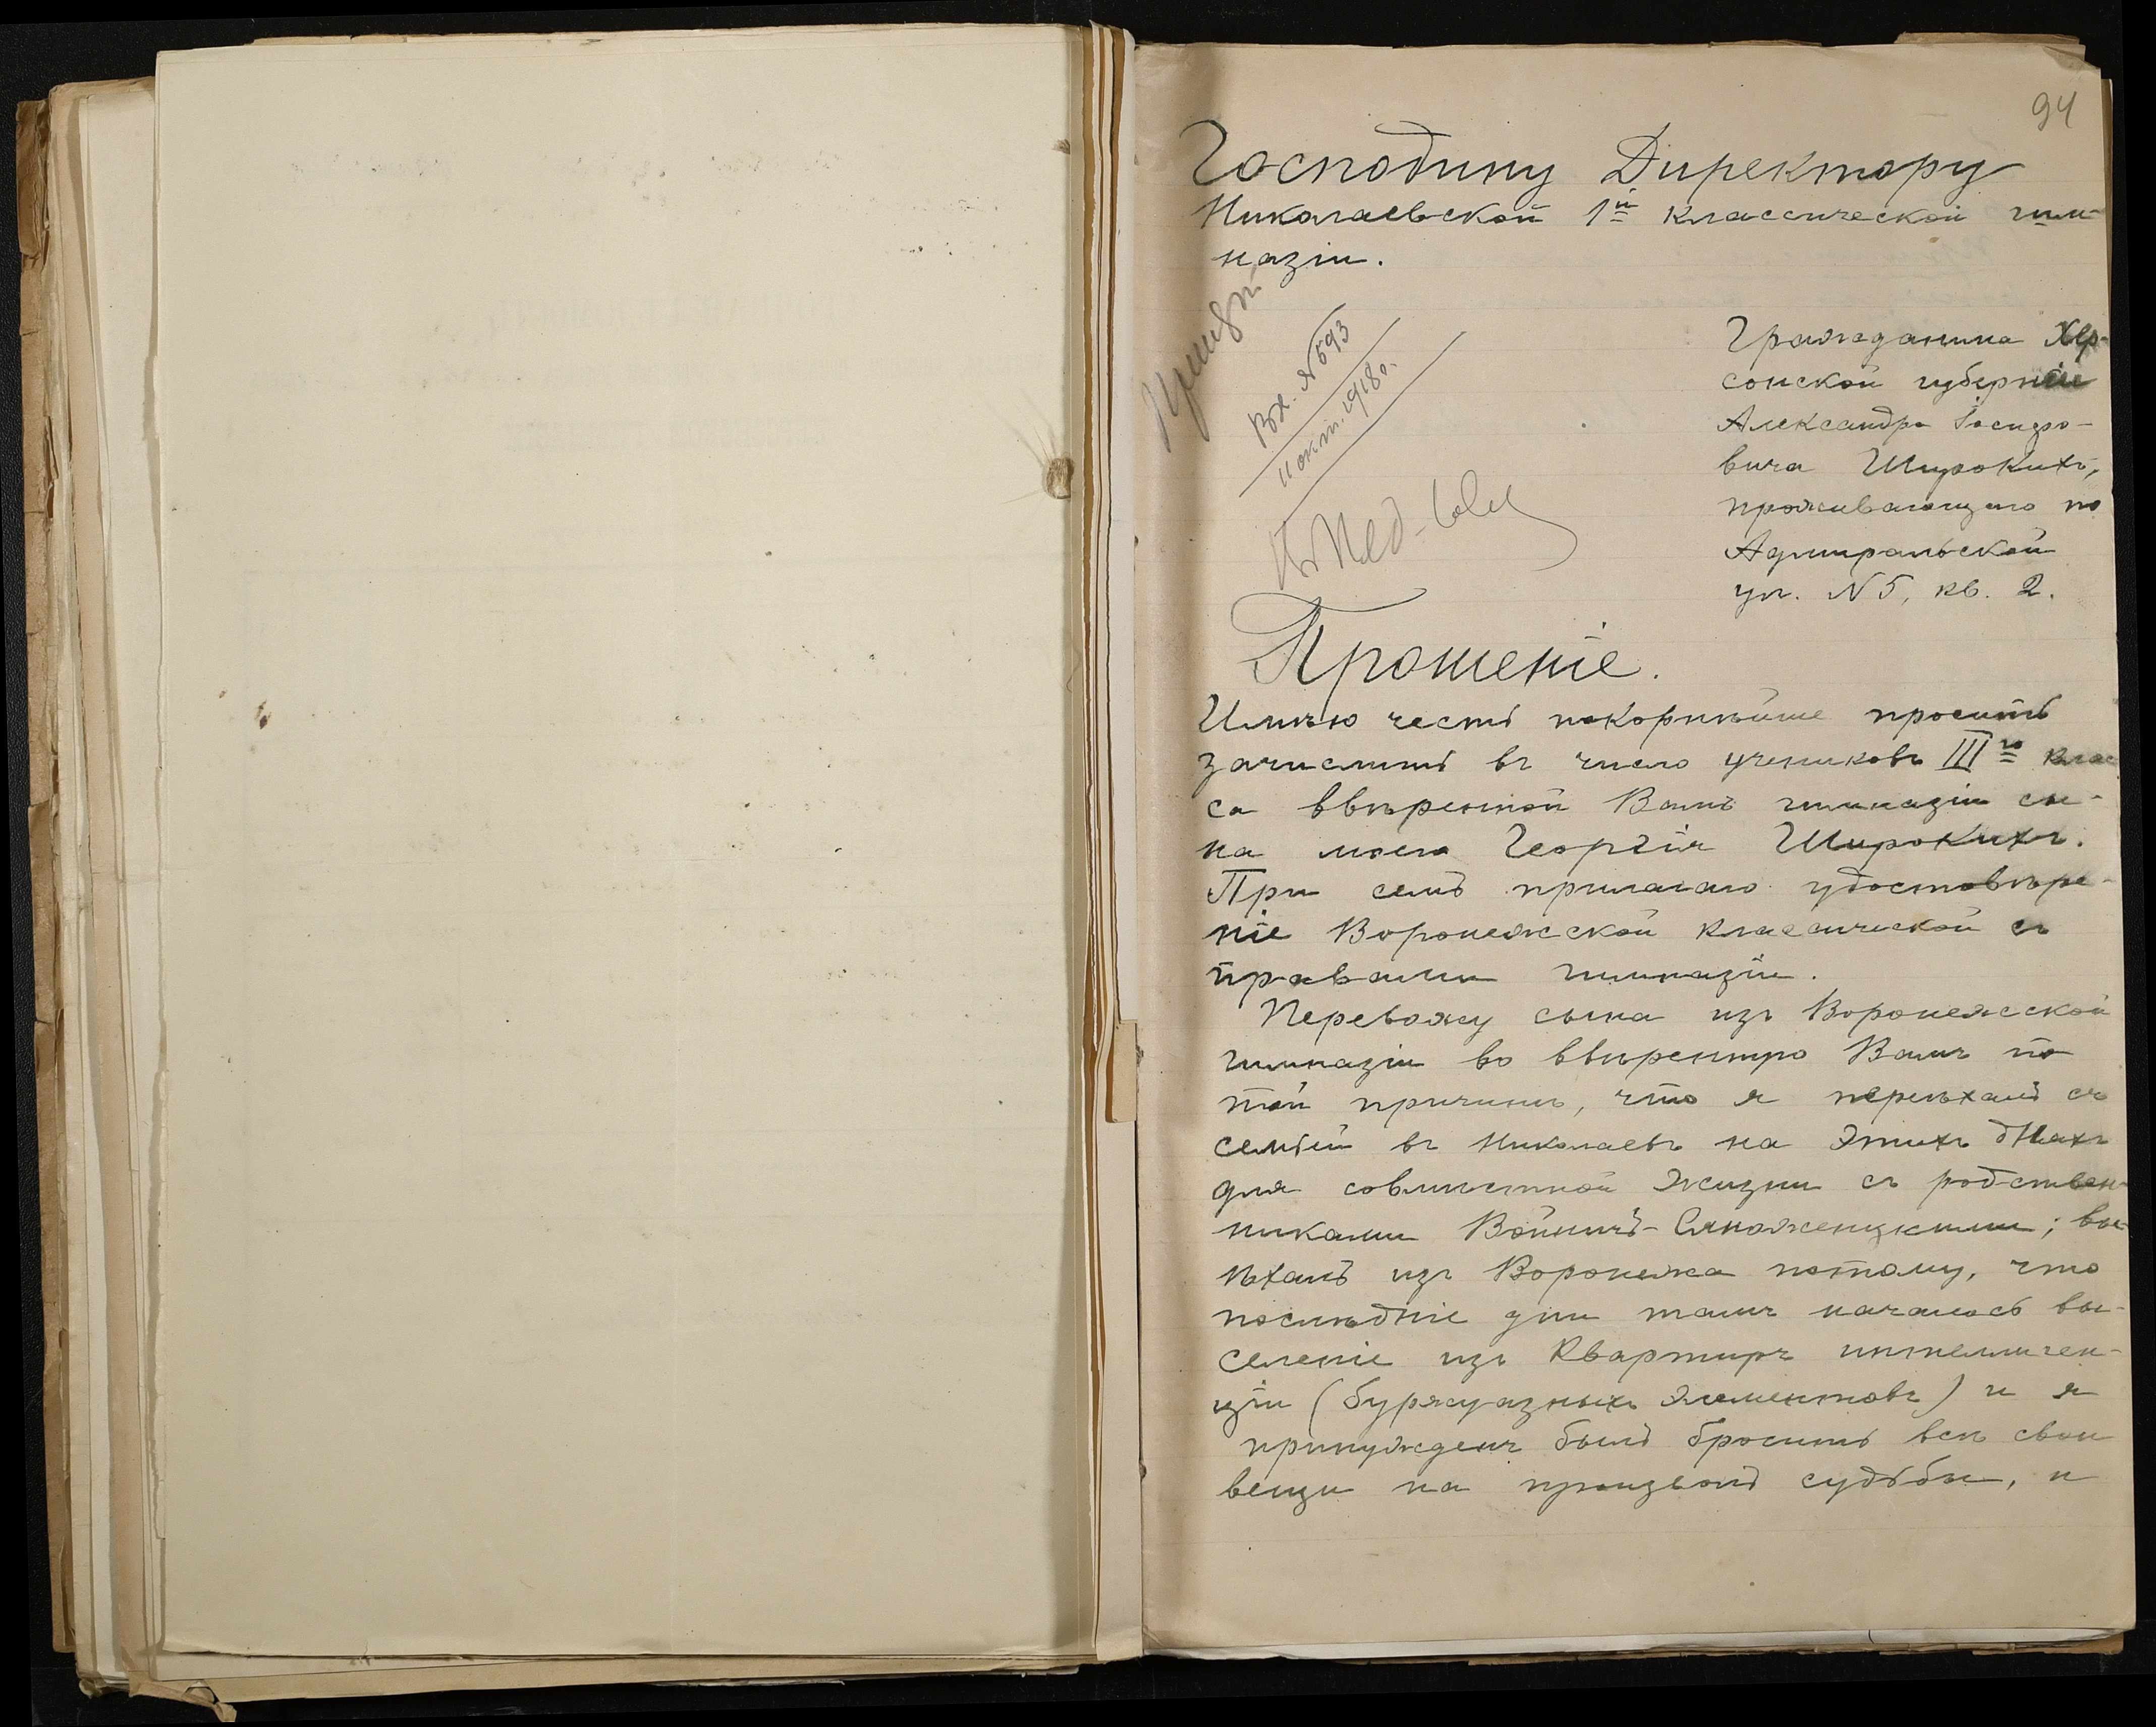 94
Господину Директору
Николаевской 1й классической гим-
назіи.
Вх. №593
11 окт. 1918 г.
Гражданина Хер-
сонской губерніи
Александра Іосифо-
вича Широкихъ,
проживающаго по
Адмиральской
ул. №5, кв. 2.
Прошеніе.
Имѣю честь покорнѣйше просить
зачислить въ число учениковъ IIIго клас
са ввѣренной Вамъ гимназіи сы-
на моего Георгія Широкихъ.
При семъ прилагаю удостовѣре-
ніе Воронежской классической съ
правами гимназіи.
Перевожу сына изъ Воронежской
гимназіи во ввѣренную Вамъ по
той причинѣ, что я переѣхалъ съ
семьей въ Николаевъ на этихъ дняхъ
для совмѣстной жизни съ родствен-
никами Войничъ-Сяноженцкими; вы-
ѣхалъ изъ Воронежа потому, что
послѣдніе дни тамъ началось вы-
селеніе изъ квартиръ интеллиген-
ціи (буржуазныхъ элементовъ) и я
принужденъ былъ бросить всѣ свои
вещи на произволъ судьбы, и